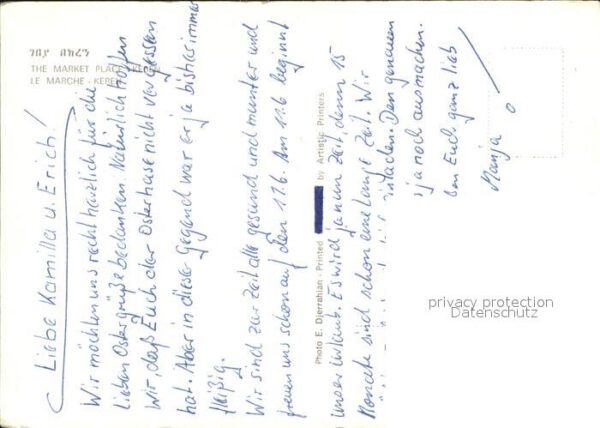 ገበያ በከረን
THE MARKET PLACE - KEREN
LE MARCHE - KEREN
Liebe Kamilla u. Erich!
Wir möchten uns recht herzlich für die
lieben Ostergrüße bedanken. Natürlich hoffen
wir, daß Euch der Osterhase nicht vergessen
hat. Aber in dieser Gegend war er ja bisher immer
fleißig.
Wir sind zur Zeit alle gesund und munter und
freuen uns schon auf den 17.6. Am 17.6 beginnt
unser Urlaub. Es wird ja nun Zeit, denn 15
Monate sind schon eine lange Zeit. Wir
Den genauen
ja noch ausmachen.
Euch ganz lieb
Manja
Photo E. Djerrahian - Printed by Artistic Printers
privacy protection
Datenschutz